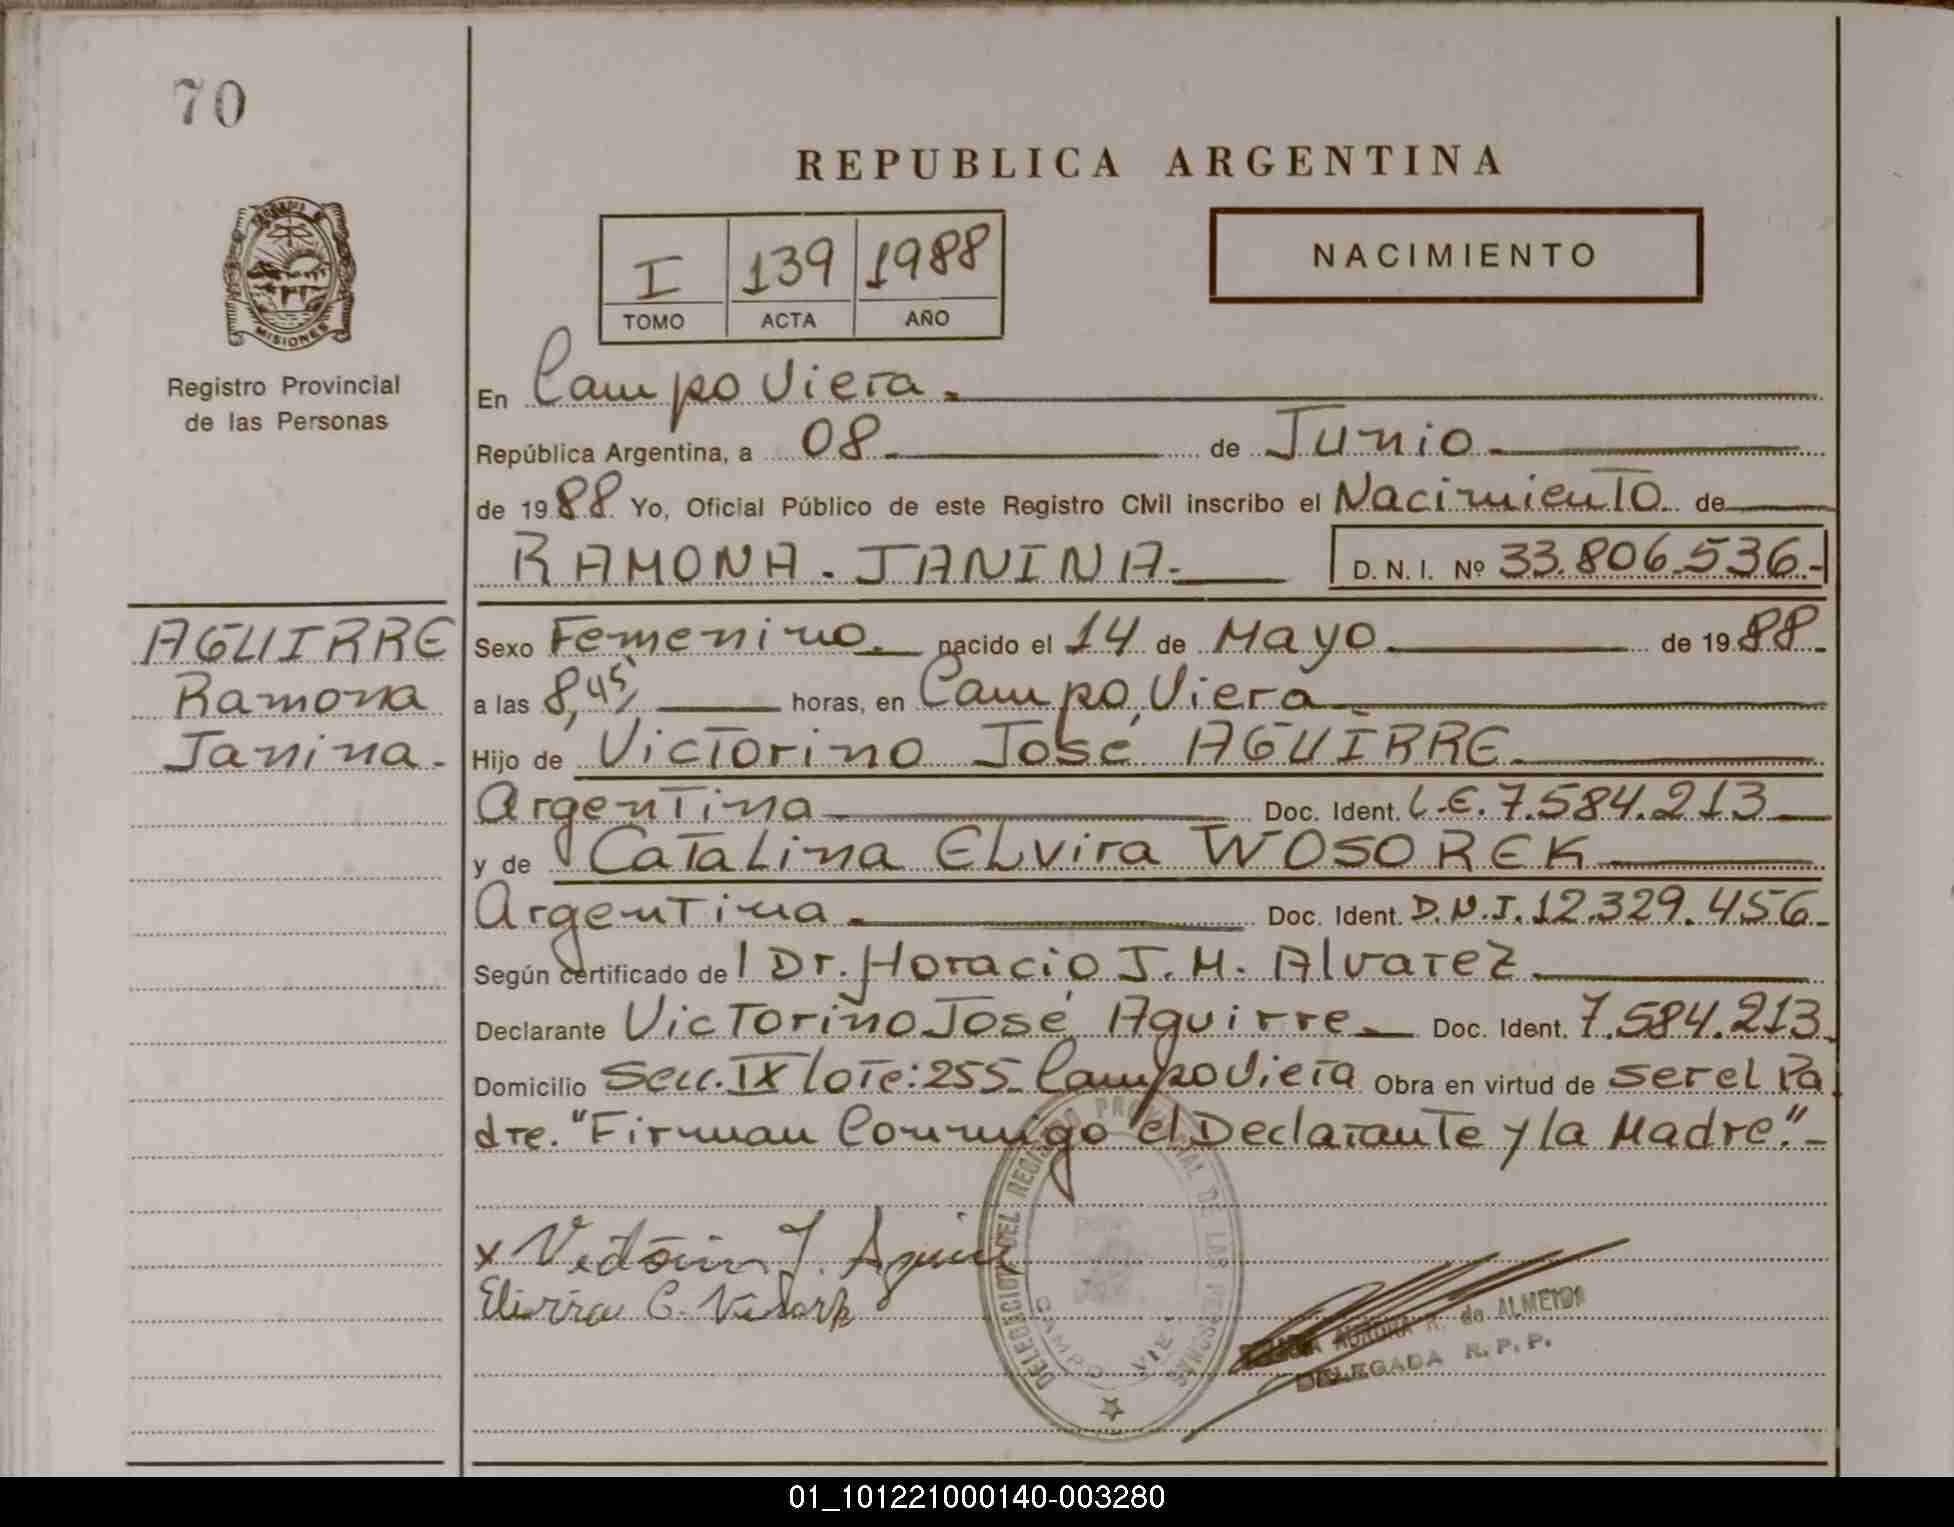 70
REPUBLICA ARGENTINA
NACIMIENTO
I 139 1988
TOMO ACTA AÑO
MISIONES
Registro Provincial
de las Personas
En Campo Viera.
República Argentina, a 08 de Junio
de 1988 Yo, Oficial Público de este Registro Civil inscribo el Nacimiento de
RAMONA. JANINA. D. N. I. Nº 33.806.536.-
AGUIRRE
Ramona
Janina.
Sexo Femenino. nacido el 14 de Mayo de 1988
a las 8,45 horas, en Campo Viera
Hijo de Victorino José AGUIRRE
Argentina Doc. Ident. L.E. 7.584.213
y de Catalina Elvira WOSOREK
Argentina Doc. Ident. D.N.I. 12.329.456
Según certificado del Dr. Horacio J. M. Alvarez
Declarante Victorino José Aguirre Doc. Ident. 7.584.213
Domicilio Secc. IX lote: 255 Campo Viera Obra en virtud de ser el Pa
dre. "Firman Conmigo el Declarante y la Madre".-
DELEGACION DEL REGISTRO PROVINCIAL DE LAS PERSONAS
CAMPO VIE
x J.
Elvira C.
AURORA R. de ALMEIDA
DELEGADA R. P. P.
01_101221000140-003280